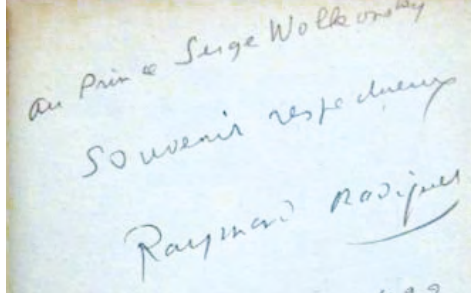 au Prince Serge Wolkonsky
Souvenir respectueux
Raymond Radiguet